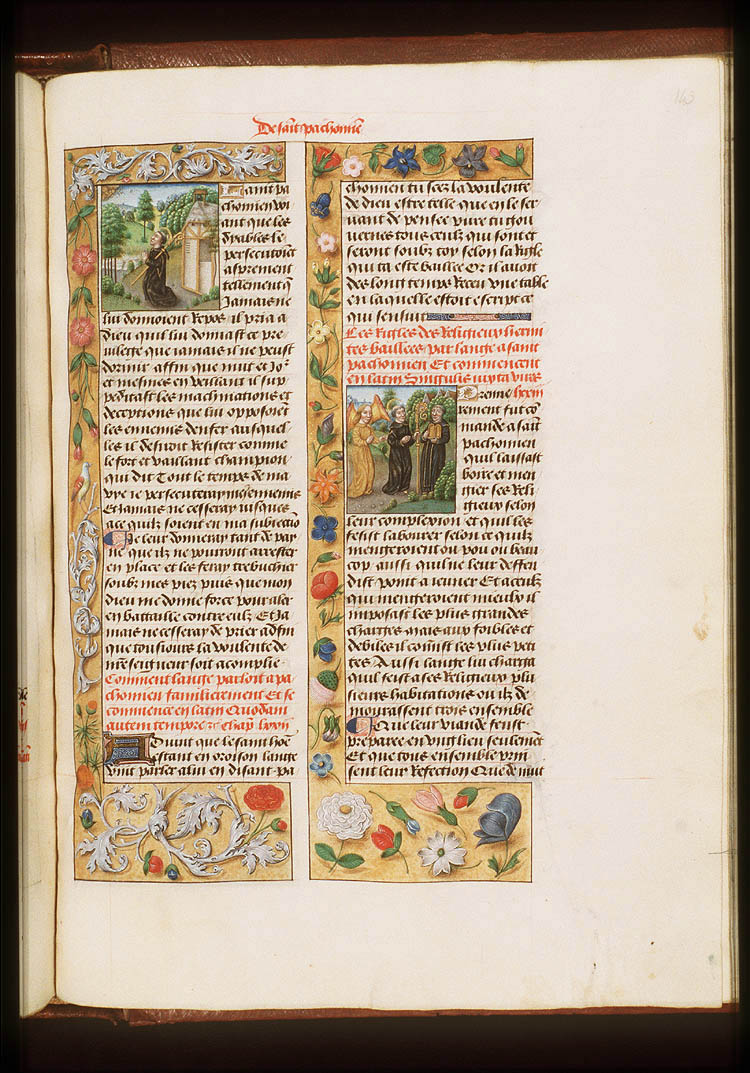 143
De saīt pachomiē
Saint pa
chomien voi
ant que les
dyables le
persecutoiēt
asprement
tellement q̄
jamais ne
lui donnoient repos il pria a
dieu quil lui donnast ce pre
uilege que jamais il ne peust
dormir affin que nuit et jo2
et mesmes en veillant il sup
peditast les machinations et
deceptions que lui opposoiēt
les ennemis denfer ausquel
les il deuoit resister comme
le fort et vaillant champion
qui dit Tout le temps de ma
vye je persecuteray mes ennemis
Et jamais ne cesseray jusques
ace quilz soient en ma subiectiō
Je leur donneray tant de pay
ne que ilz ne pourront arrester
en place et les feray trebucher
soubz mes piez puis que mon
dieu me donne force pour aler
en bataille contre eulz Et ja
mais ne cesseray de prier adfin
que tousiours la voulente de
nr̄e seigneur soit acomplie
Comment lange parloit a pa
chomien familierement Et se
commence en latin Quodam
autem tempore &c Chap̄ lxvii
Auint que le saint hōe
estant en oroison lange
vint parler a lui en disant pa
chomien tu scez la voulente
de dieu estre telle que en le ser
uant de pensee pure tu gou
uernes tous ceulz qui sont et
seront soubz toy selon la rigle
qui ta este baillee Or il auoit
des long temps receu vne table
en laquelle estoit escript ce
qui sensuit
Les rigles des religieux hermi
tes baillees par lange a saint
pachomien Et commencent
en latin Singulis iuxta vires
Premie lxviii
rement fut cō
mande a saīt
pachomien
quil laissast
boire et men
gier ses reli
gieux selon
leur complexion et quil les
fesist labourer selon ce quilz
mengeroient ou pou ou beau
cop aussi quil ne leur deffen
dist point a jeuner Et a ceulz
qui mengeroient mieulx il
imposast les plus grandes
charges mais aux foibles et
debiles il comist les plus peti
tes Aussi lange lui charga
quil feist a ses religieux plu
sieurs habitations ou ilz de
mourassent trois ensemble
Que leur viande feust
preparee en vng lieu seulemēt
Et que tous ensemble prin
sent leur refection Que de nuit